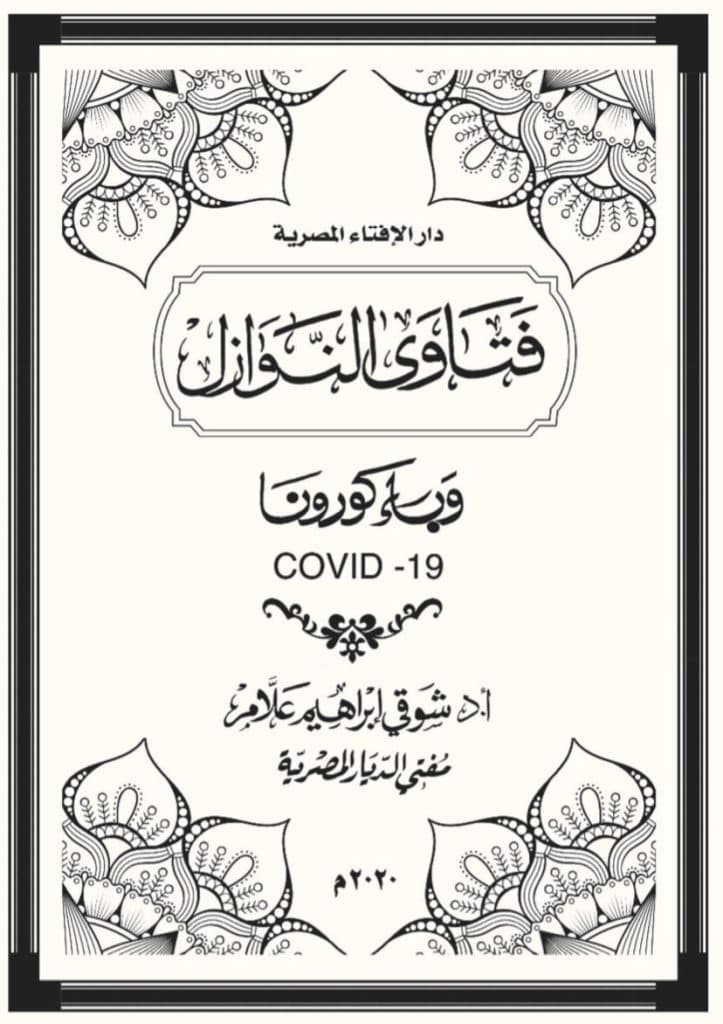 دار الإفتاء المصرية
فَتَاوَى النَّوَازِل
وَبَاء كورونَا
COVID -19
أ.د شَوقي إبْرَاهِيم عَلَّام
مُفتي الدّيَار المصْريّة
٢٠٢٠م